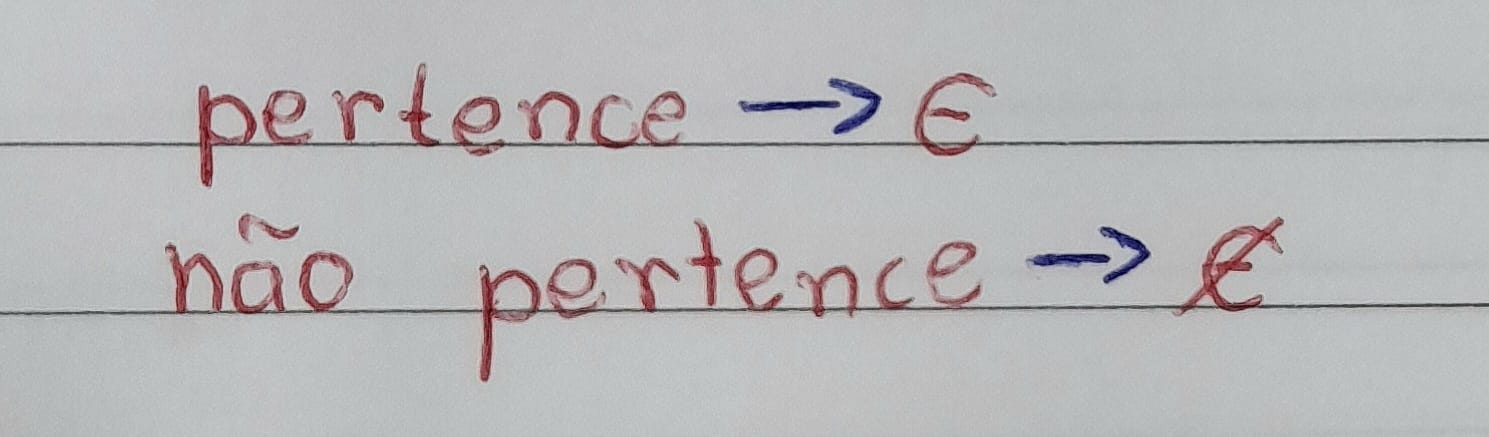 pertence → ∈
não pertence → ∉